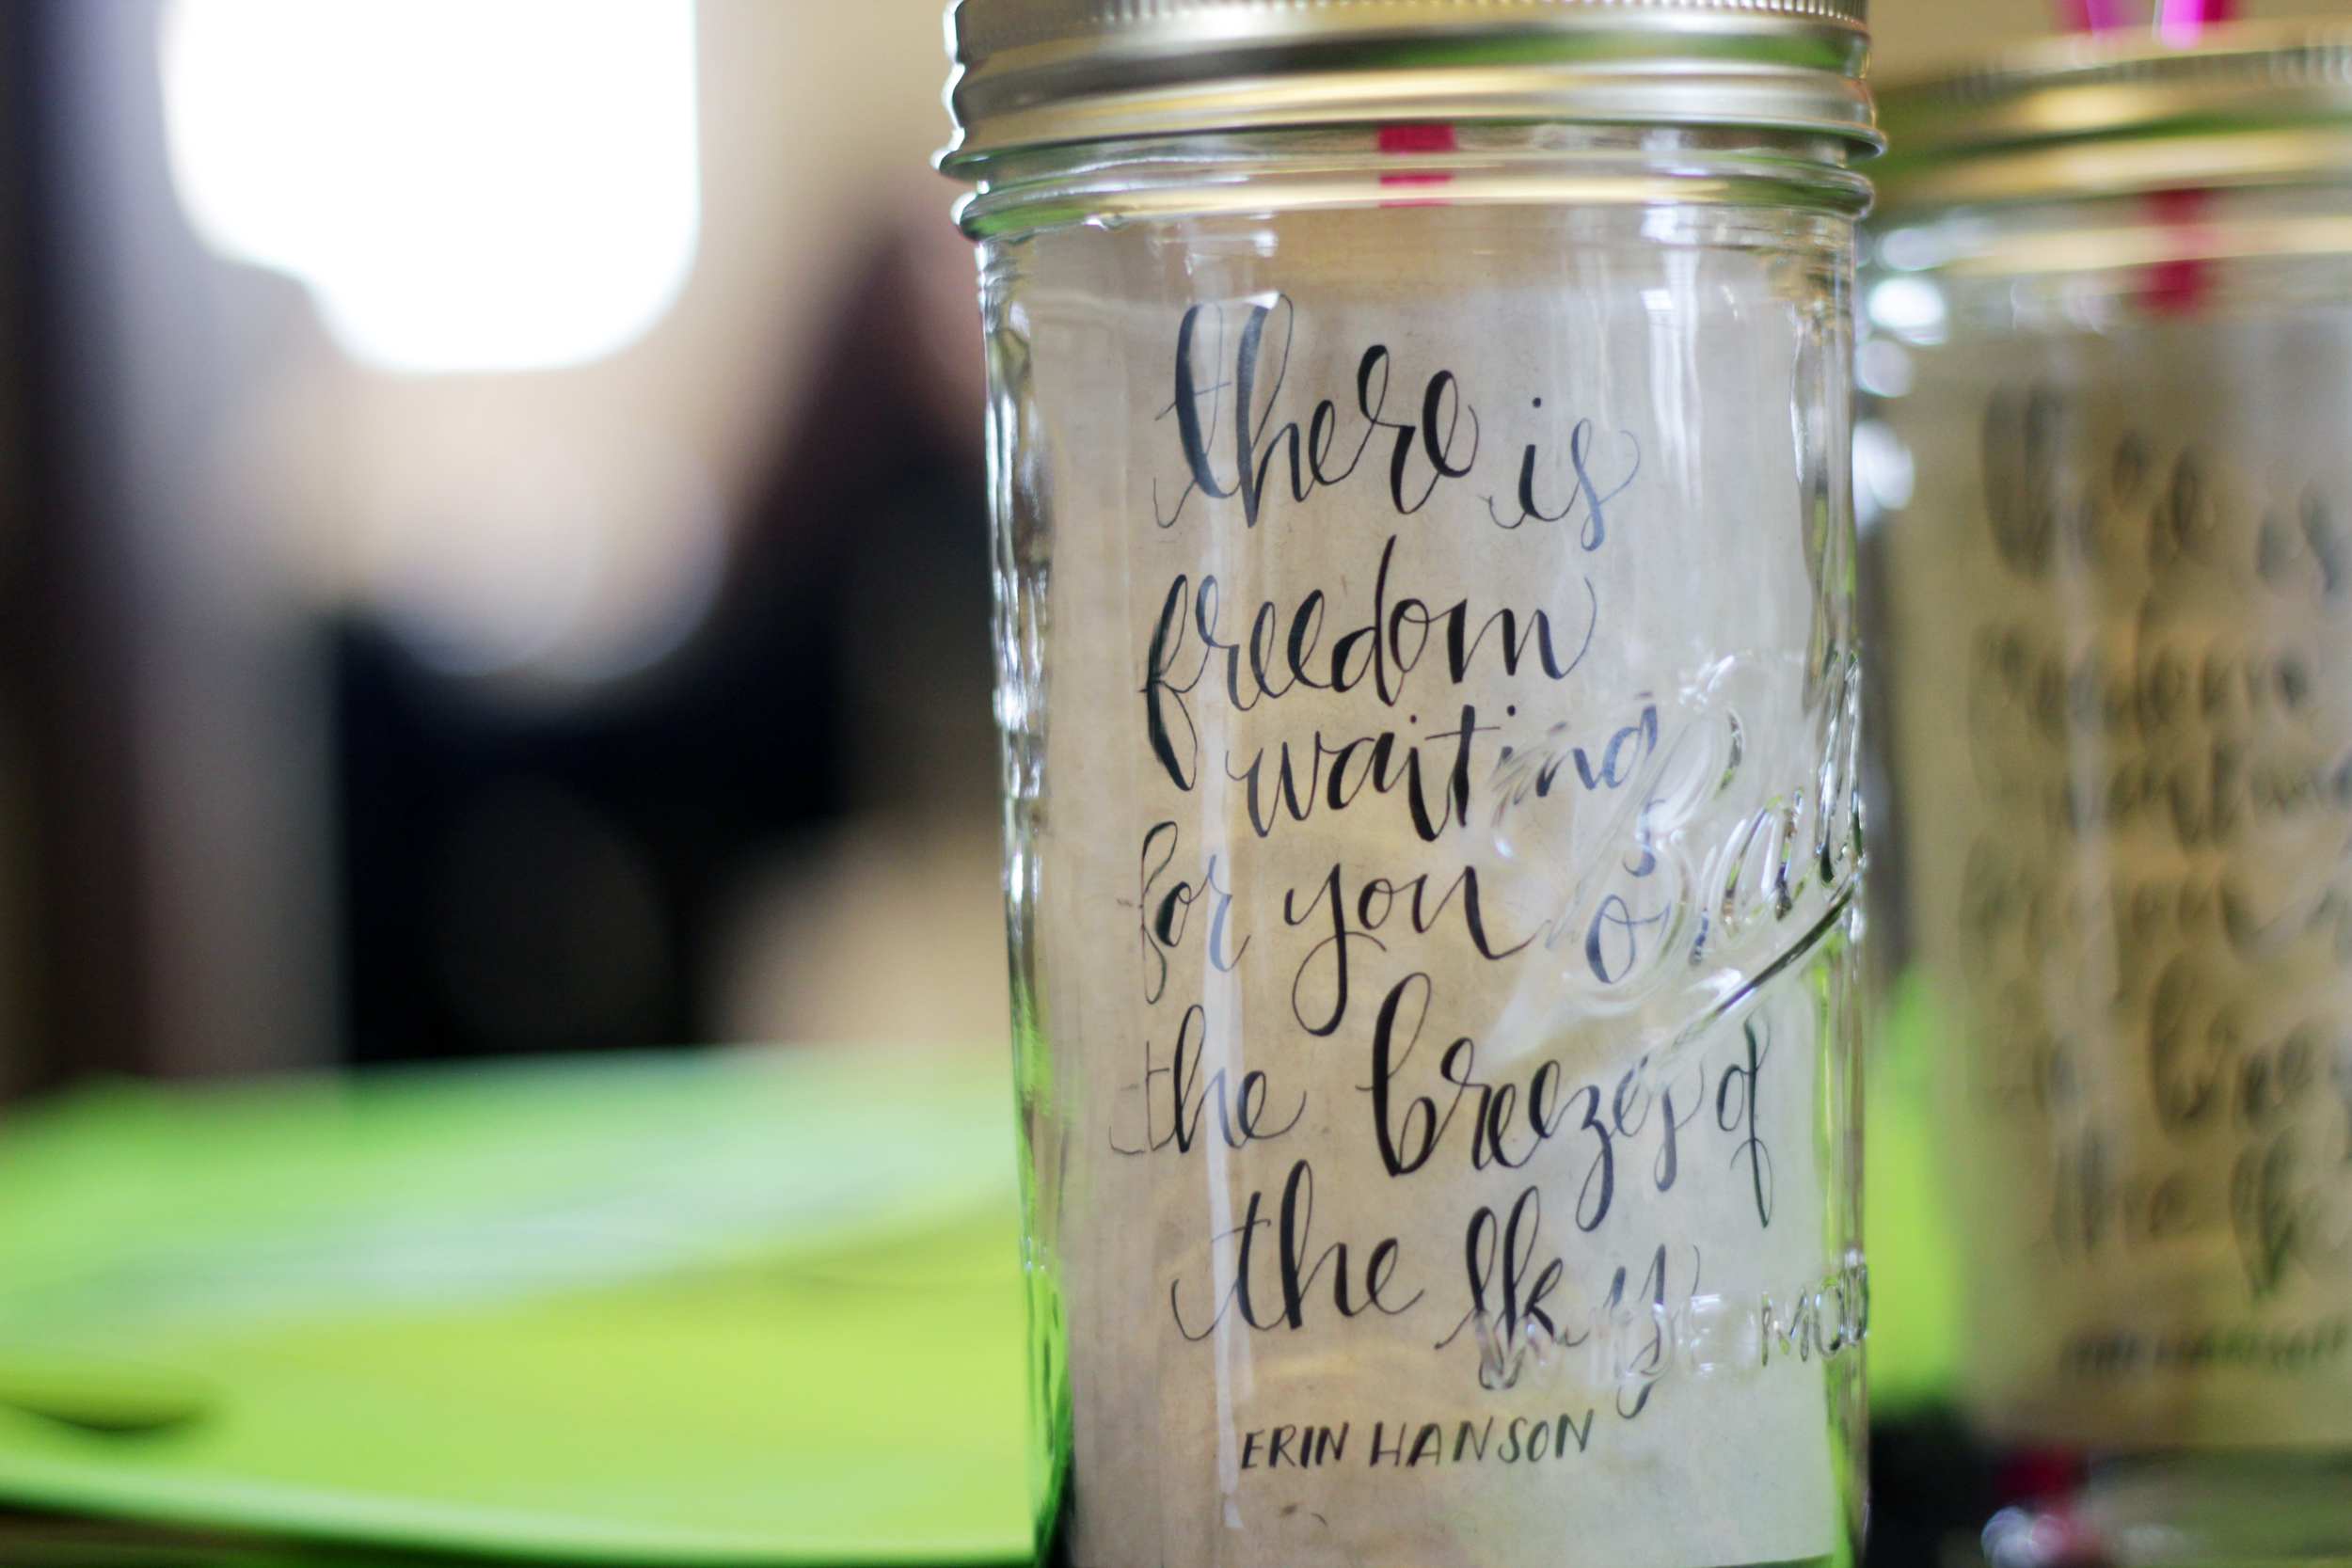 there is
freedom
waiting
for you on
the breezes of
the sky
ERIN HANSON
Ball
WIDE MOU